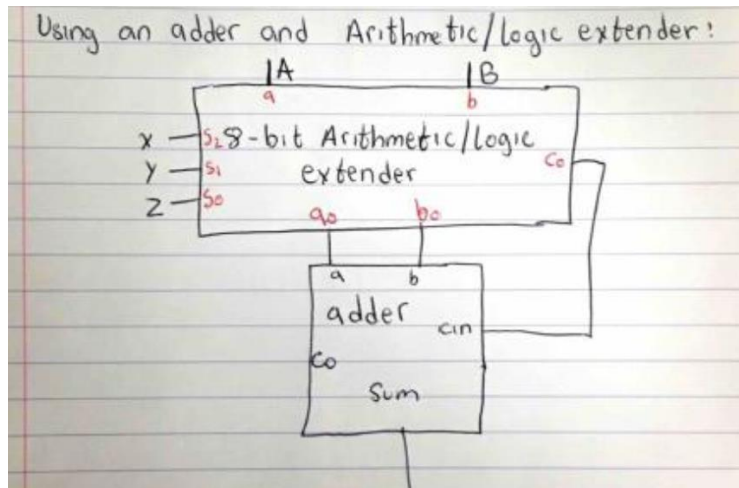 Using an adder and Arithmetic/logic extender:
A B
a b
X S2 8-bit Arithmetic/logic
Y S1 extender Co
Z S0
ao bo
a b
adder
cin
Co
Sum